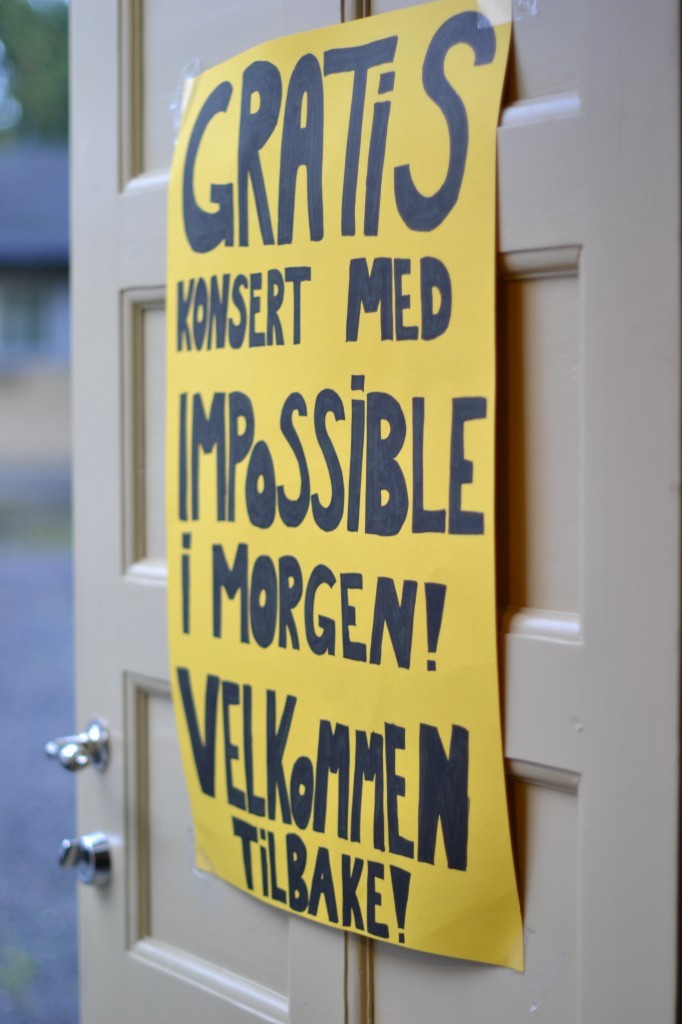 GRATiS
KONSERT MED
IMPOSSiBLE
i MORGEN!
VELKOMMEN
TiLBAKE!